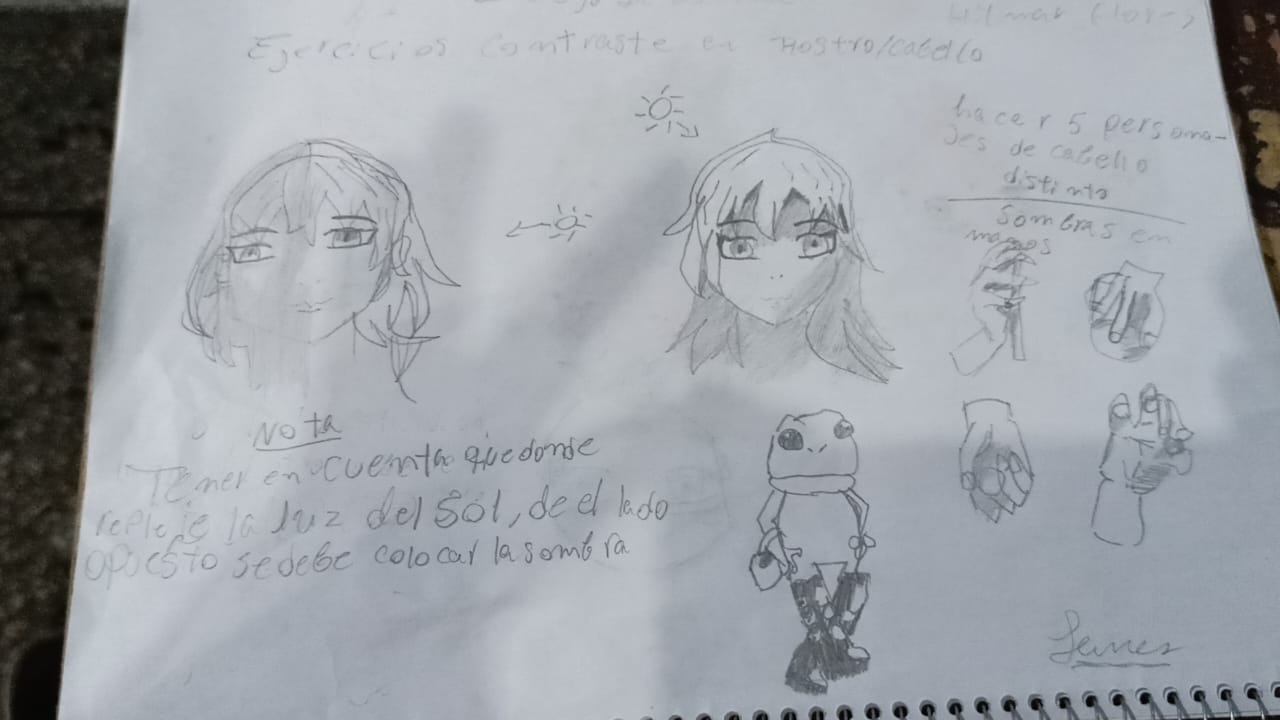 Ejercicios contraste en rostro/cabello
hacer 5 persona-
jes de cabello
distinto
Sombras en
manos
Nota
Tener en cuenta que donde
refleje la luz del Sol, de el lado
opuesto se debe colocar la sombra